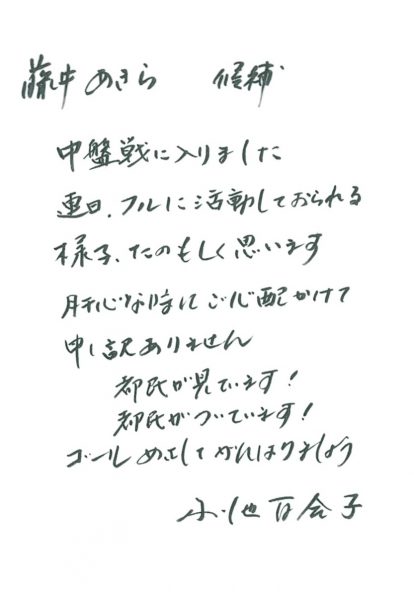 藤井あきら 候補
中盤戦に入りました
連日、フルに活動しておられる
様子、たのもしく思います
肝心な時にご心配かけて
申し訳ありません
都民が見ています!
都民がついています!
ゴールめざしてがんばりましょう
小池百合子